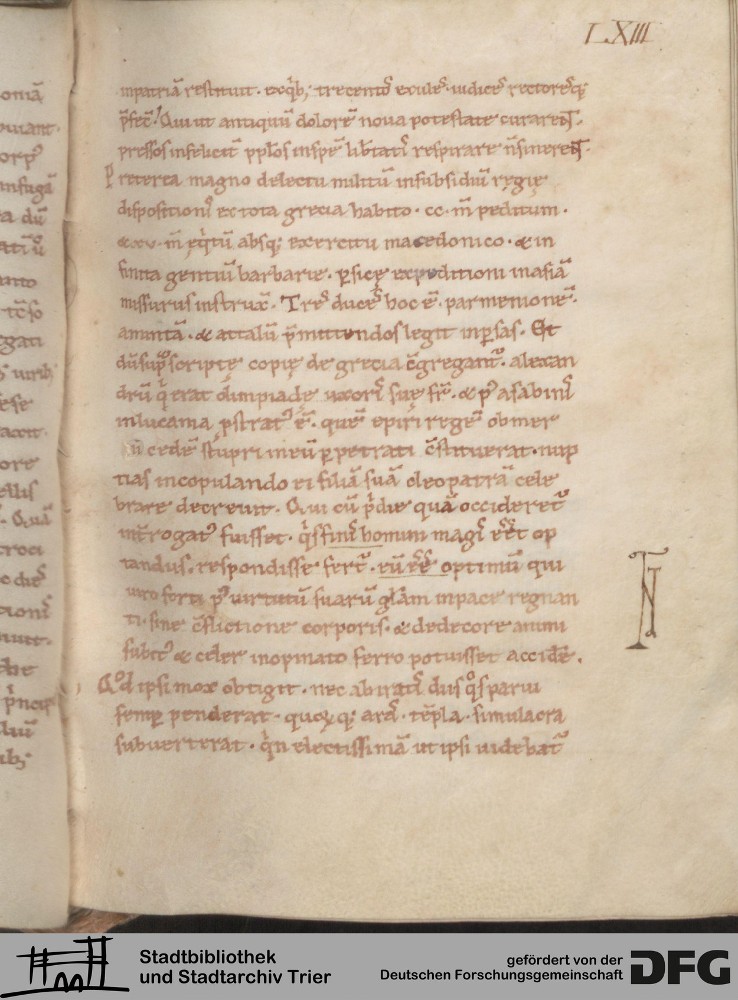 LXIII
inpatriā restituit. exq̄b; trecentoˢ exuleˢ iudiceˢ rectoreˢq;
p̄fec̄. Qui ut antiquū dolorē noua potestate curareɳt.
pressos infelicit̄ pplos inspē lib̄tatis respirare n̄ sinereɳt.
Preterea magno delectu militū insubsidiū regię
dispositionis ex tota grecia habito. cc. m̄ peditum.
& xv. m̄ eq̄tū absq; exercitu macedonico. & in
finita gentiū barbarie. psicę expeditioni inasiā
missurus instrux̄. Tres duces hoc ē. parmenionē.
amintā. & attalū p̄mittendos legit inpsas. Et
dū sup̄scripte copię de grecia c̄gregant᷑. alexan
drū q̄ erat olimpiadę uxoris suę fr̄. & pꝰ asabinis
inlucania pstratꝰ ē. quē epiri regē ob mer
cedē stupri ineū ppetrati c̄stituerat. nup
tias incopulando ei filiā suā cleopatrā cele
brare decreuit. Qui cū p̄die quā occideret᷑
int̄rogatꝰ fuisset. q̄s finis homini magis eēt op
tandus. respondisse fert᷑. eū eē optimū qui
uiro forti pꝰ uirtutū suarū gl̄am inpace regnan
ti. sine c̄flictione corporis. & dedecore animi
subitꝰ & celer inopinato ferro potuisset accidē.
Qd̄ ipsi mox obtigit. nec ab iratis dus qᵒs parui
semp penderat. quoꝝq; arā. tēpla. simulacra
subuerterat. q̄n electissimā ut ipsi uidebat᷑
omā
corpꝰ
infugā
ea dū
cgati
ore
ellis
Quā
troci
tionis
p̄ncep
Stadtbibliothek
und Stadtarchiv Trier
gefördert von der
Deutschen Forschungsgemeinschaft
DFG